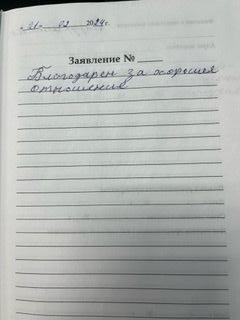 «31» 02 2024г.
Заявление №
Благодарен за хорошия
отношения